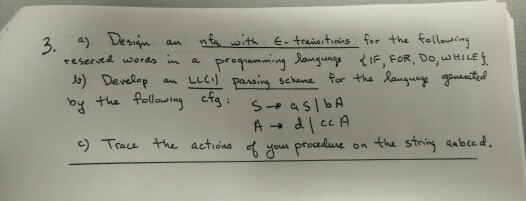 3. a) Design an nfa with ε-transitions for the following
reserved words in a programming language {IF, FOR, DO, WHILE}.
b) Develop an LL(1) parsing scheme for the language generated
by the following cfg: S → aS | bA
A → d | ccA
c) Trace the actions of your procedure on the string aabccd.